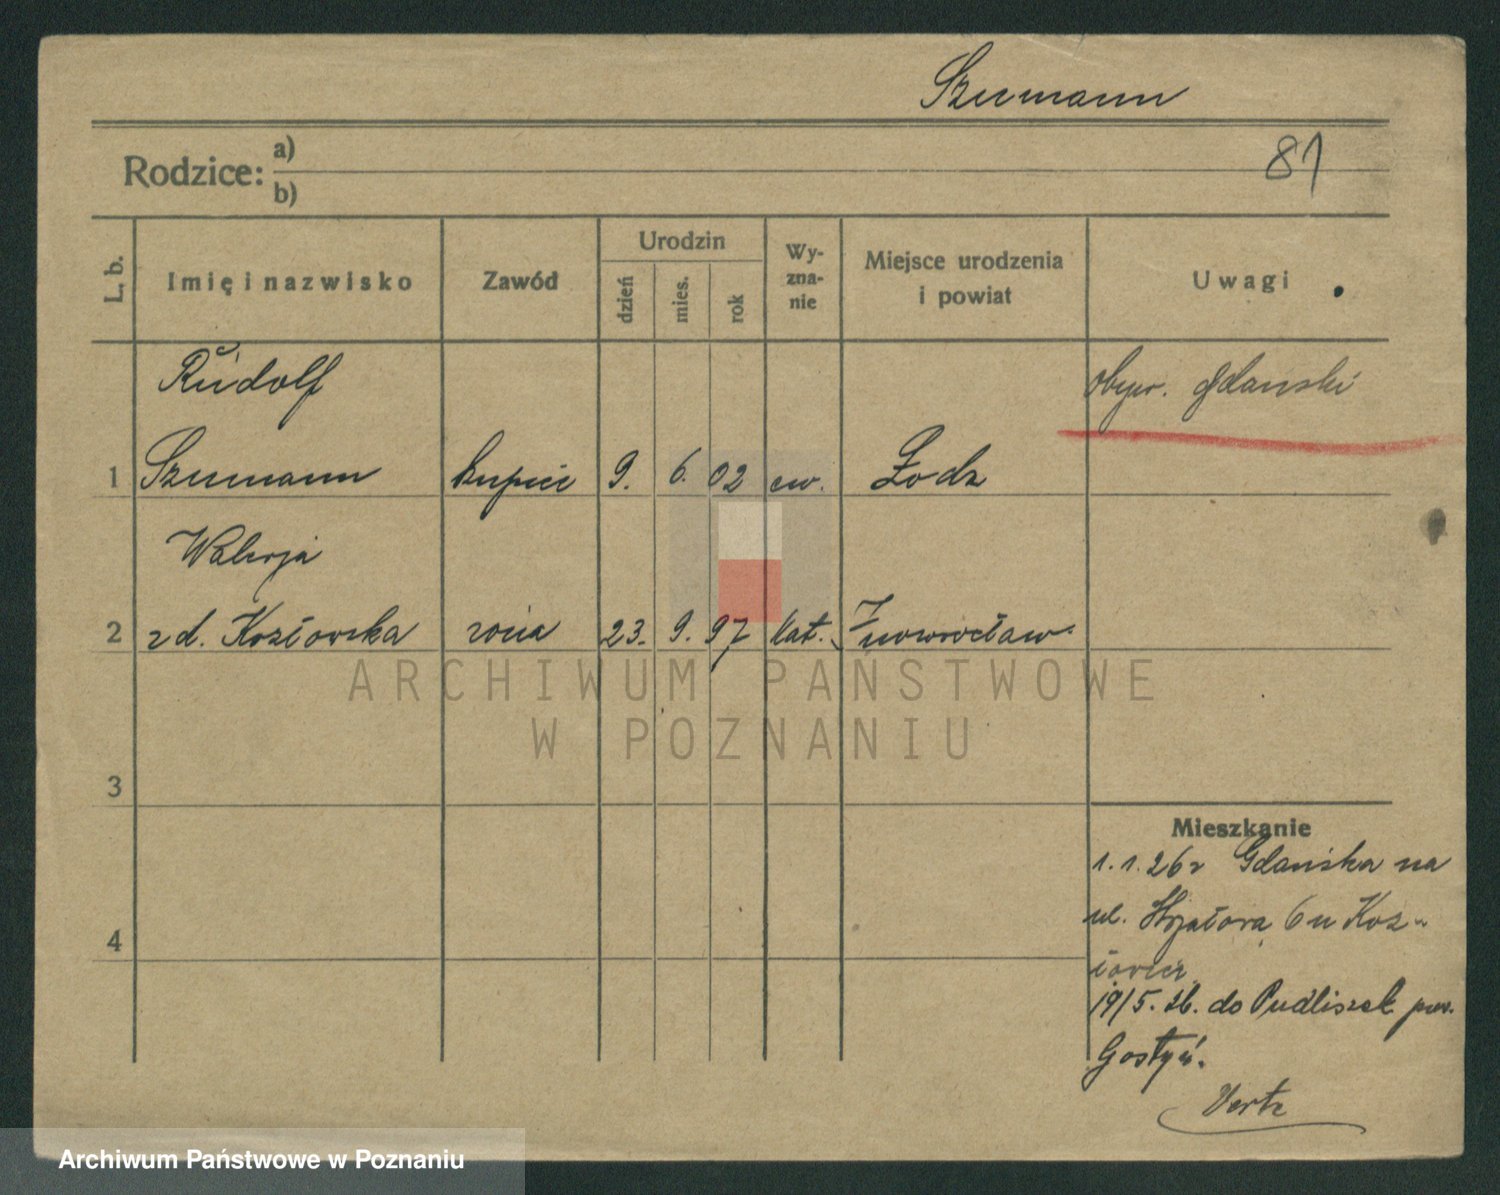 Szumann
81
Rodzice: a)
b)
L. b. Imię i nazwisko Zawód Urodzin dzień mies. rok Wyznanie Miejsce urodzenia i powiat Uwagi
Rudolf obyw. gdański
1 Szumann kupiec 9. 6. 02 ew. Łodz
Walerja
2 z d. Kozłowska żona 23. 9. 97 kat. Inowrocław.
ARCHIWUM PAŃSTWOWE
W POZNANIU
3
Mieszkanie
1.1.26 z Gdańska na
ul. 6 u Koz-
4
19/5.26. do Pudliszek pow.
Gostyń.
Archiwum Państwowe w Poznaniu